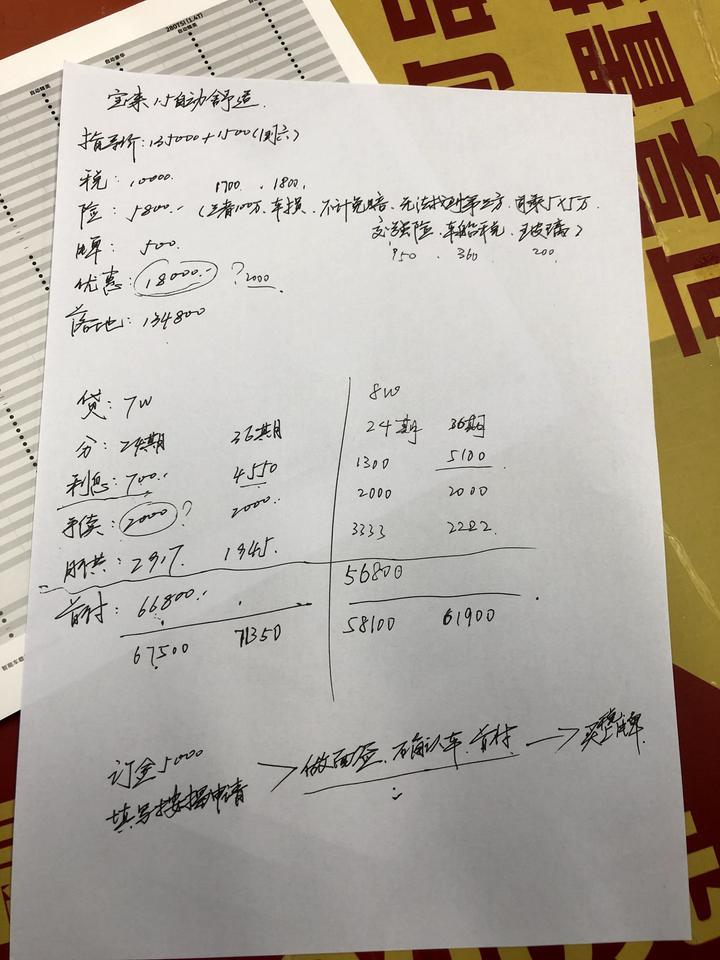 280TSI(1.4T)
自动精英
自动豪华
自动精英
宝来1.5自动舒适.
指导价: 135000+1500(国六)
税: 10000.
1700. 、1800.
险: 5800.- (三者100万、车损、不计免赔、无法找到第三方、自乘5×5万、
交强险、车船税、玻璃)
950 . 360 . 200.
牌: 500.
优惠: 18000.- ?2000
落地: 134800
贷: 7W
分: 24期 36期
利息: 700.- 4550
手续: 2000? 2000.
月供: 2917. 1945.
首付: 66800.-
67500 71350
8W
24期 36期
1300 5100
2000 2000
3333 2222
56800
58100 61900
订金5000
填写按揭申请
做面签、确认车、首付 → 买整牌.